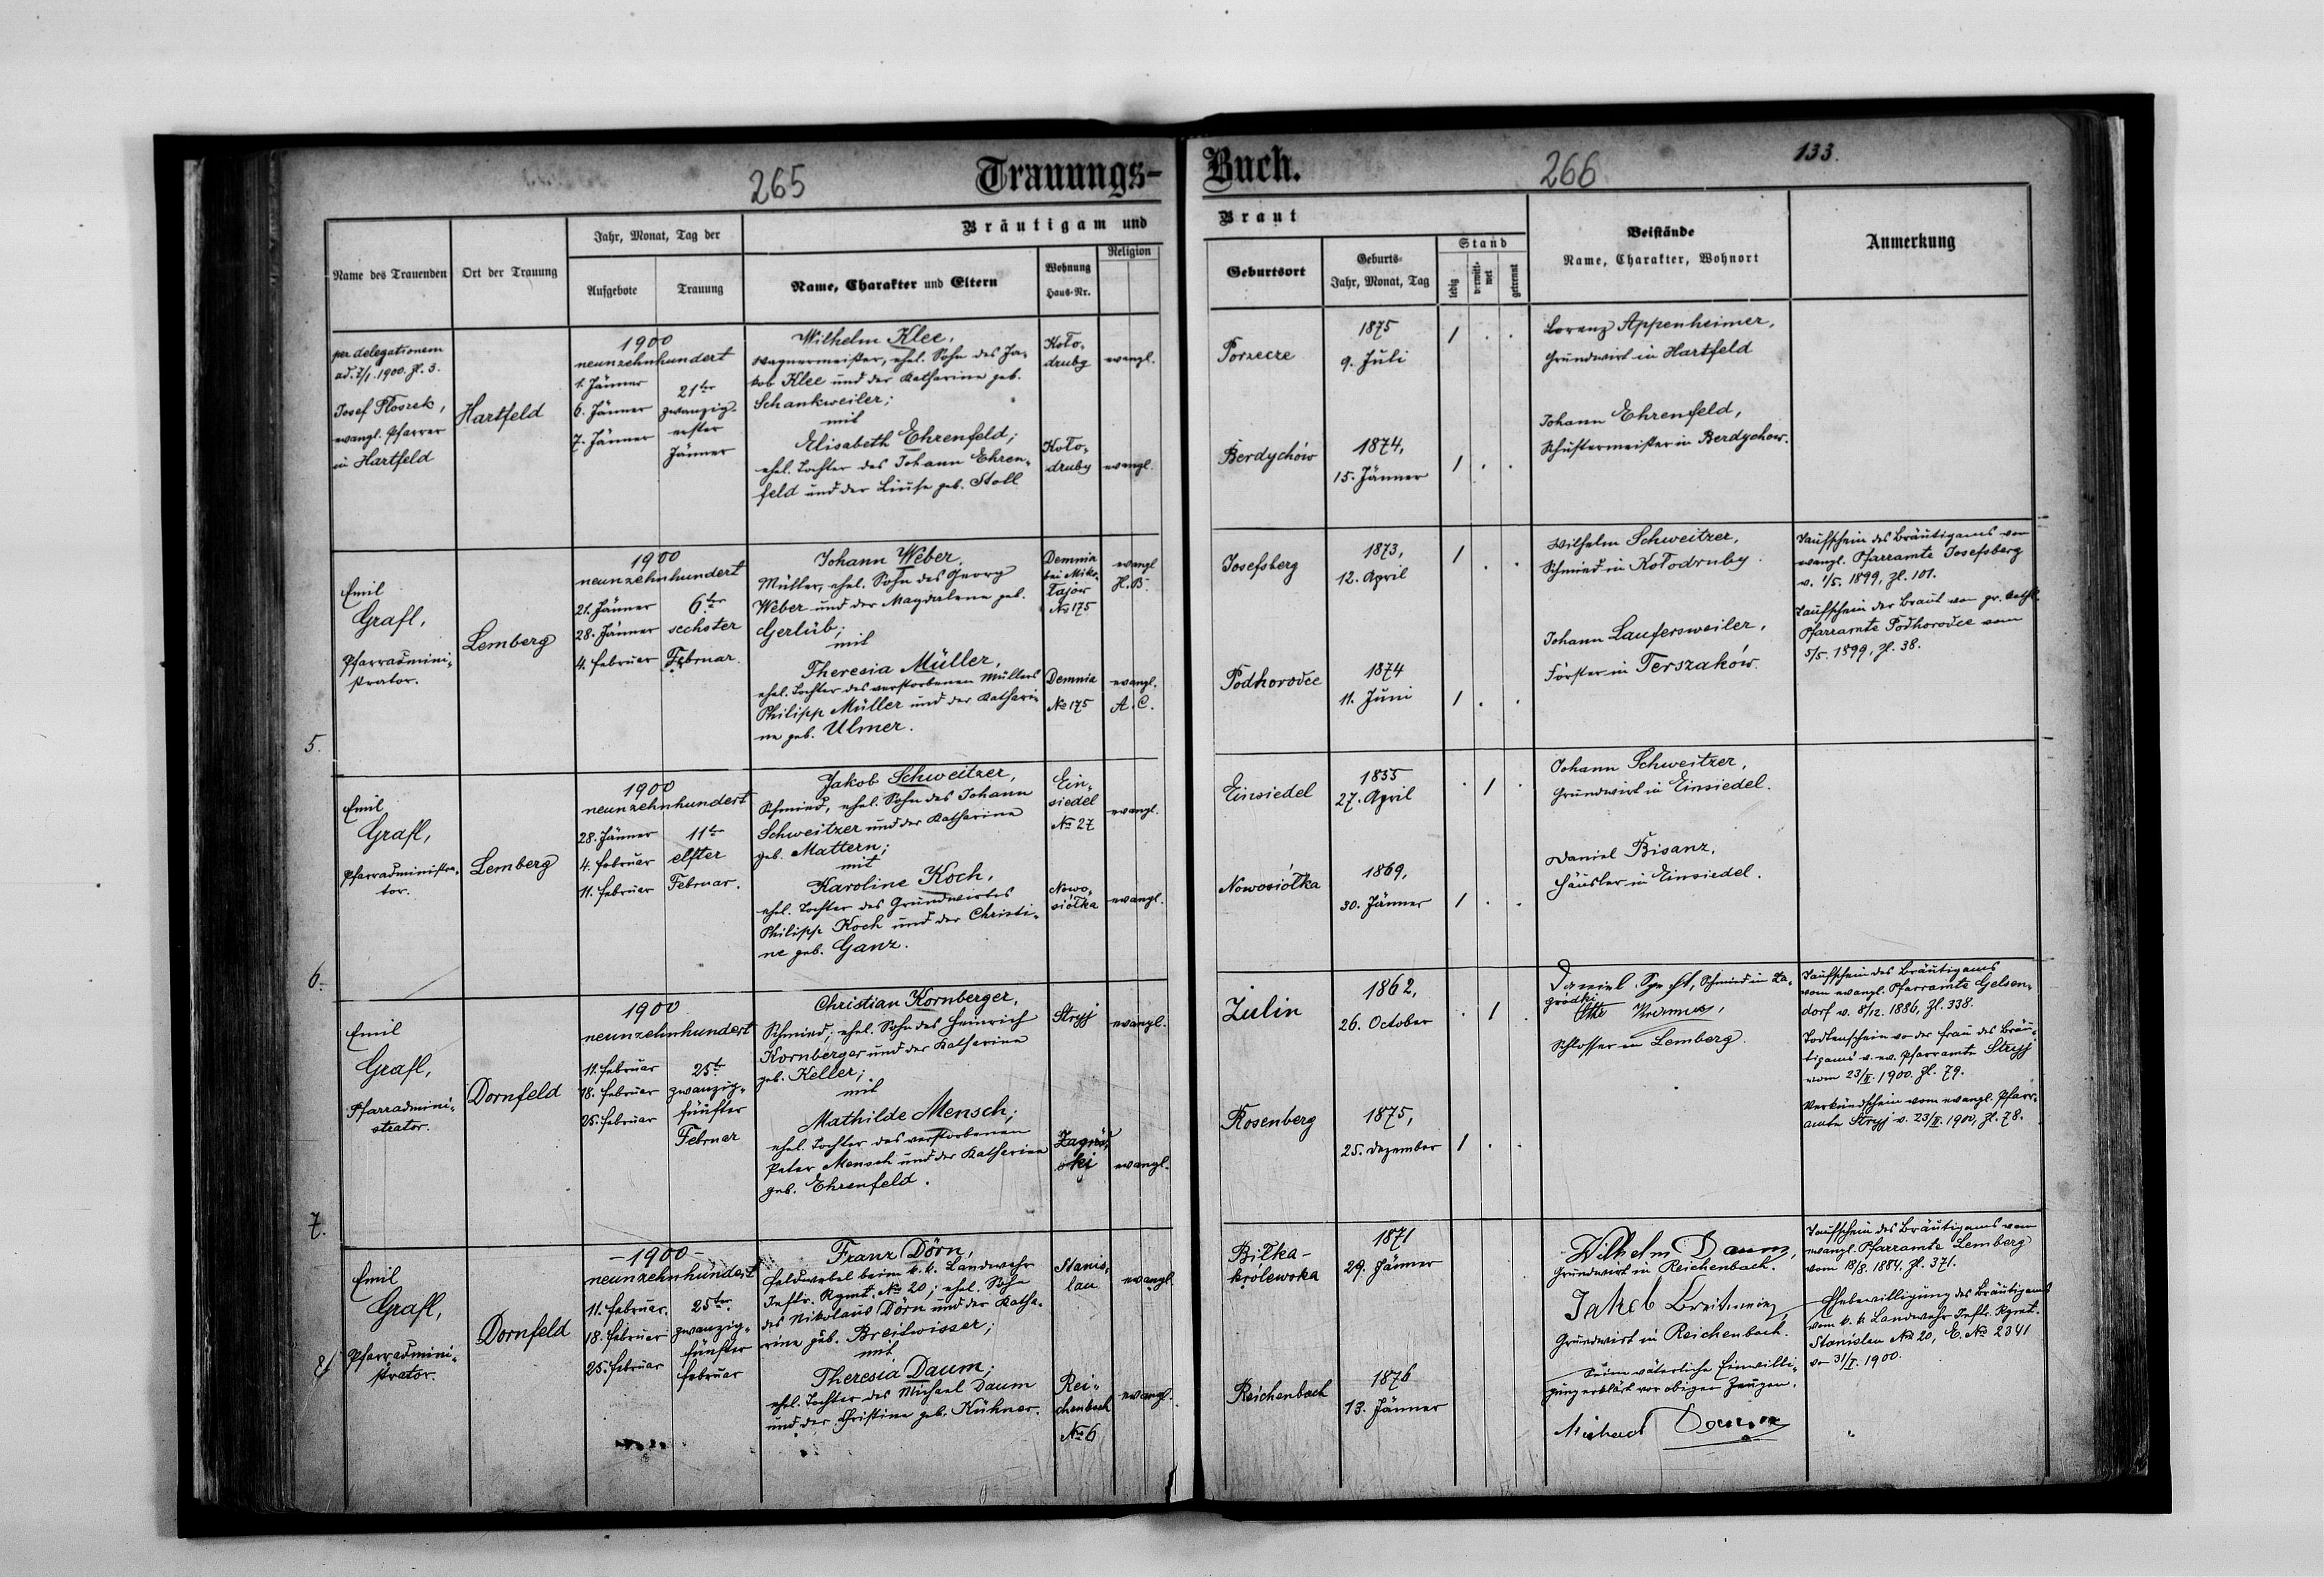 265
Trauungs-
Buch.
266
133.
Name des Trauenden
Ort der Trauung
Jahr, Monat, Tag der
Aufgebote
Trauung
Bräutigam und
Name, Charakter und Eltern
Wohnung
Haus-Nr.
Religion
Braut
Geburtsort
Geburts-
Jahr, Monat, Tag
Stand
ledig
verwit-
wet
getrennt
Beistände
Name, Charakter, Wohnort
Anmerkung
per delegationem
ad. 7/1. 1900. Zl. 3.
Josef Ploszek,
evangl. Pfarrer
in Hartfeld
Hartfeld
1900
neunzehnhundert
1. Jänner
6. Jänner
7. Jänner
21ter
zwanzig-
erster
Jänner
Wilhelm Klee,
Wagnermeister, ehel. Sohn des Ja-
kob Klee und der Katharina geb.
Schankweiler;
mit
Elisabeth Ehrenfeld;
ehel. Tochter des Johann Ehren-
feld und der Luise geb. Stoll
Koło-
druby
evangl.
Koło-
druby
evangl.
Porzecze
1875
9. Juli
1 . .
Berdychów
1874,
15. Jänner
1 . .
Lorenz Appenheimer,
Grundwirt in Hartfeld
Johann Ehrenfeld,
Schustermeister in Berdychow.
5.
Emil
Grafl,
Pfarradmini-
strator.
Lemberg
1900
neunzehnhundert
21. Jänner
28. Jänner
4. Februar
6ter
sechster
Februar.
Johann Weber,
Müller, ehel. Sohn des Georg
Weber und der Magdalena geb.
Gerlüb;
mit
Theresia Müller,
ehel. Tochter des verstorbenen Müllers
Philipp Müller und der Kathari-
na geb. Ulmer.
Demnia
bei Miko-
łajow
No 175
evangl
H.B.
Demnia
No 175
evangl.
A.C.
Josefsberg
1873,
12. April
1 . .
Podhorodce
1874
11. Juni
1 . .
Wilhelm Schweitzer,
Schmied in Kołodruby.
Johann Laufersweiler,
Förster in Terszaków.
Taufschein des Bräutigams vom
evangl. Pfarramte Josefsberg
v. 1/5. 1899, Zl. 101.
Taufschein der Braut vom gr. kath.
Pfarramte Podhorodce vom
5/5. 1899, Zl. 38.
6.
Emil
Grafl,
Pfarradministra-
tor.
Lemberg
1900
neunzehnhundert
28. Jänner
4. Februar
11. Februar
11ter
elfter
Februar.
Jakob Schweitzer,
Schmied, ehel. Sohn des Johann
Schweitzer und der Katharina
geb. Mattern;
mit
Karoline Koch,
ehel. Tochter des Grundwirtes
Philipp Koch und der Christi-
ne geb. Ganz.
Ein-
siedel
No 27
evangl.
Nowo-
siółka
evangl.
Einsiedel
1855
27. April
. 1 .
Nowosiółka
1869,
30. Jänner
1 . .
Johann Schweitzer,
Grundwirt in Einsiedel.
Daniel Bisanz,
Häusler in Einsiedel.
7.
Emil
Grafl,
Pfarradmini-
strator.
Dornfeld
1900
neunzehnhundert
11. Februar
18. Februar
25. Februar
25ter
zwanzig-
fünfter
Februar
Christian Kornberger,
Schmied; ehel. Sohn des Heinrich
Kornberger und der Katharina
geb. Keller;
mit
Mathilde Mensch;
ehel. Tochter des verstorbenen
Peter Mensch und der Katharina
geb. Ehrenfeld.
Stryj
evangl.
Zagród-
ki
evangl.
Zulin
1862,
26. October
. 1 .
Rosenberg
1875,
25. Dezember
1 . .
Daniel Schmied in Za-
grodki
Schlosser in Lemberg.
Taufschein des Bräutigams
vom evangl. Pfarramte Gelsen-
dorf v. 8/12. 1886, Zl. 338.
Todtenschein der Frau des Bräu-
tigams v. ev. Pfarramte Stryj
vom 23/II. 1900. Zl. 79.
Verkündschein vom evangl. Pfarr-
amte Stryj v. 23/II. 1900, Zl. 78.
8.
Emil
Grafl,
Pfarradmini-
strator.
Dornfeld
-1900-
neunzehnhundert
11. Februar.
18. Februar
25. Februar
25ter.
zwanzig-
fünfter
Februar
Franz Dörn,
Feldwebel beim k. k. Landwehr
Inftr. Rgmt. No 20; ehel. Sohn
des Nikolaus Dörn und der Katha-
rine geb. Breitwisser;
mit
Theresia Daum;
ehel. Tochter des Michael Daum
und der Christine geb. Kühner.
Stanis-
lau
evangl
Rei-
chenbach
No 6
evangl.
Biłka-
krolewska
1871
29. Jänner
Reichenbach
1876
13. Jänner
Wilhelm Daum,
Grundwirt in Reichenbach.
Jakob
Grundwirt in Reichenbach.
Seine väterliche Einwilli-
gung erklärt vor obigen Zeugen.
Michael Daum
Taufschein des Bräutigams vom
evangl. Pfarramte Lemberg
vom 18/8. 1884, Zl. 371.
Ehebewilligung des Bräutigams
vom k. k. Landwehr Inftr. Rgmt.
Stanislau No 20, E. No 2341
v. 31/I. 1900.